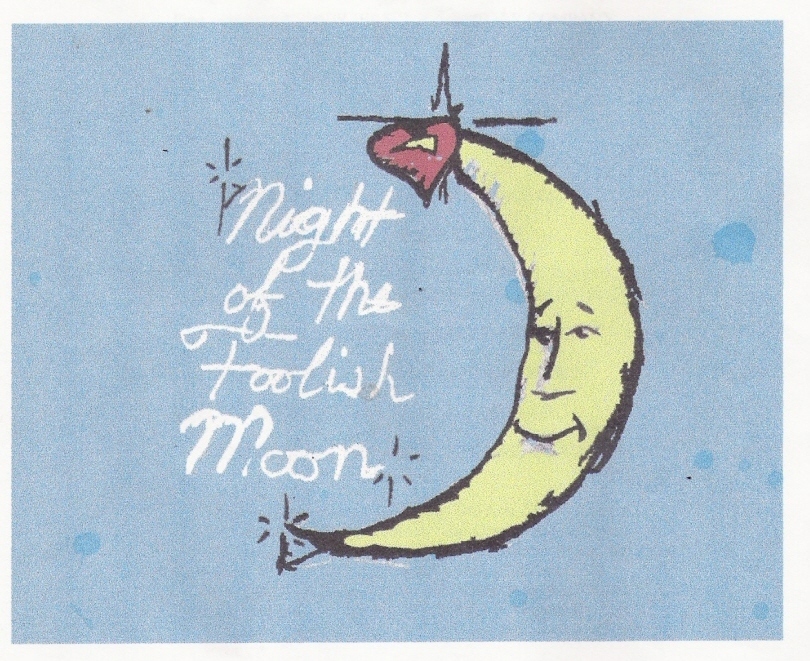 Night
of the
Foolish
Moon